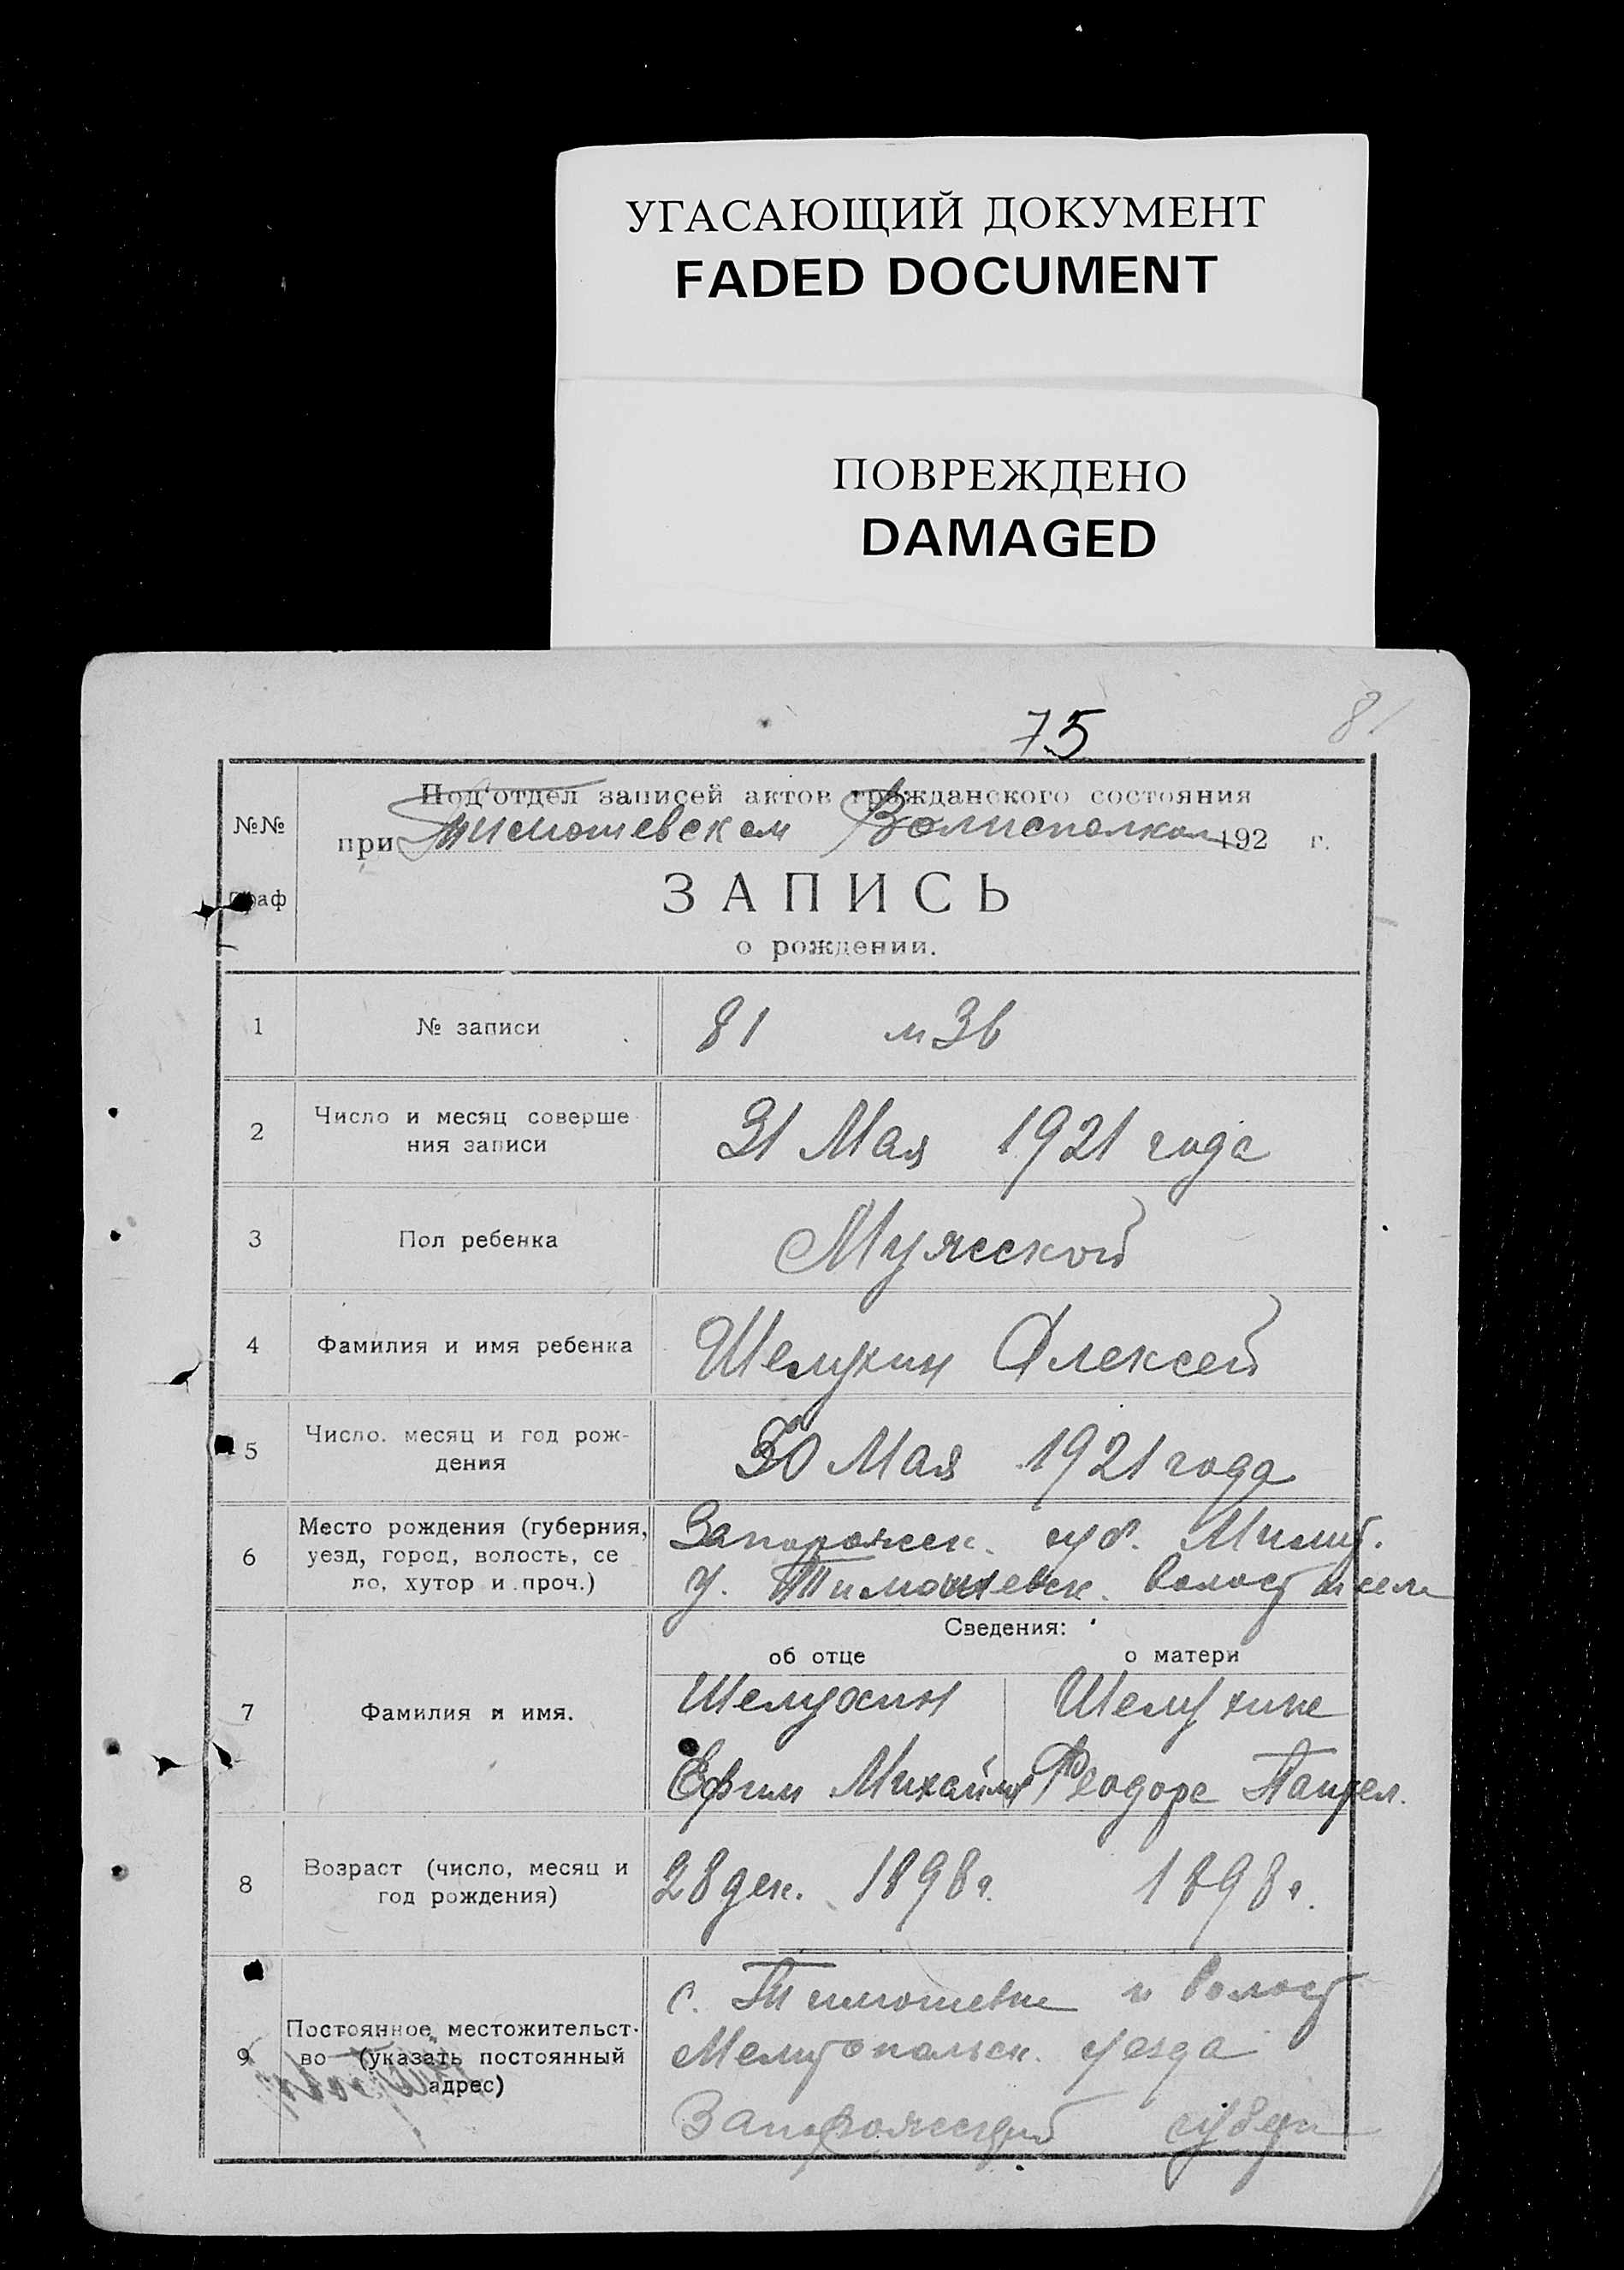 УГАСАЮЩИЙ ДОКУМЕНТ
FADED DOCUMENT
ПОВРЕЖДЕНО
DAMAGED
75
81
№№
граф
Под'отдел записей актов гражданского состояния
при Тимошевском Волисполком 192 г.
ЗАПИСЬ
о рождении.
1 № записи 81 м36
2 Число и месяц соверше
ния записи
31 Мая 1921 года
3 Пол ребенка Мужской
4 Фамилия и имя ребенка Шелухин Алексей
5 Число. месяц и год рож-
дения
30 Мая 1921 года
6 Место рождения (губерния,
уезд, город, волость, се
ло, хутор и проч.)
Запорожск. губ. Мелит.
у. Тимошевск. волост и села
Сведения:
об отце о матери
7 Фамилия и имя.
Шелухин Шелухина
Ефим Михайл Феодора
8 Возраст (число, месяц и
год рождения)
28 дек. 1898 г. 1898 г.
9 Постоянное местожительст-
во (указать постоянный
адрес)
с. Тимошевка и волост
Мелитопольск. уезда
Запорожской губерн